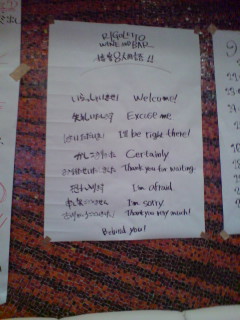 RIGOLETTO
WINE AND BAR
接客8大用語!!
いらっしゃいませ Welcome!
失礼いたします Excuse me
I'll be right there!
かしこまりました Certainly
お待たせいたしました Thank you for waiting.
恐れ入ります I'm afraid
申し訳ございません I'm sorry
ありがとうございました Thank you very much!
Behind you!